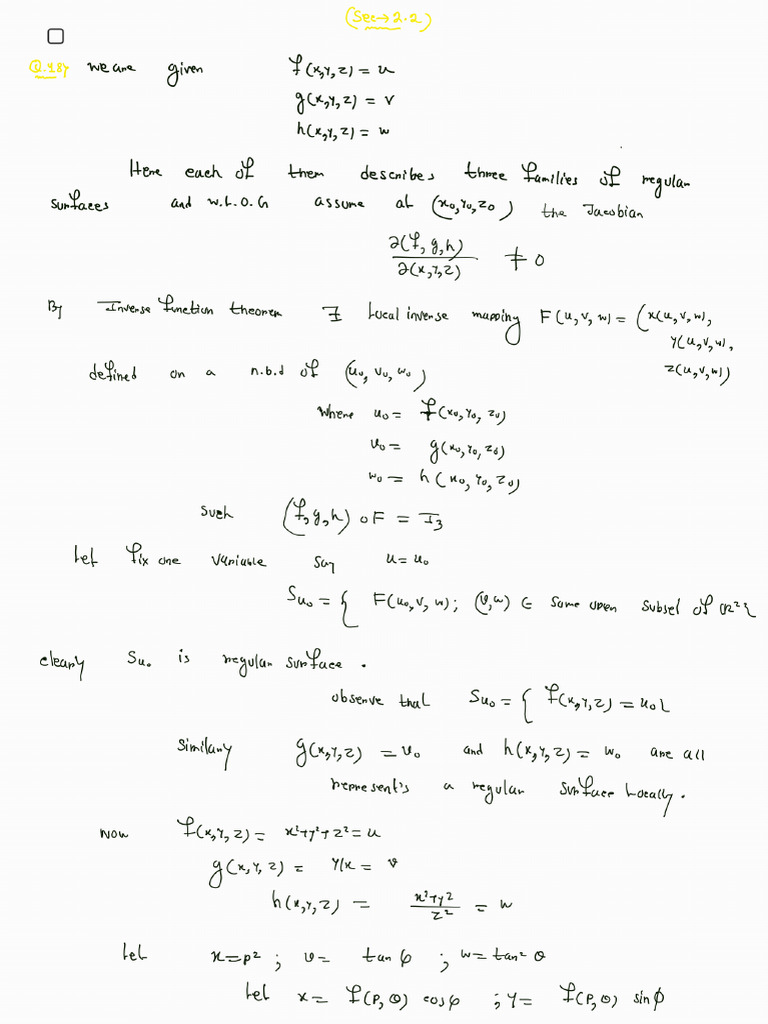 (Sec→2.2)
Q.18) We are given f(x,y,z) = u
g(x,y,z) = v
h(x,y,z) = w
Here each of them describes three families of regular
surfaces and W.L.O.G assume at (x₀,y₀,z₀) the Jacobian
∂(f,g,h)/∂(x,y,z) ≠ 0
By Inverse function theorem ∃ Local inverse mapping F(u,v,w) = (x(u,v,w),
y(u,v,w),
z(u,v,w))
defined on a n.b.d of (u₀, v₀, w₀)
where u₀ = f(x₀,y₀,z₀)
v₀ = g(x₀,y₀,z₀)
w₀ = h(x₀,y₀,z₀)
Such (f,g,h) o F = I₃
Let fix one variable say u = u₀
Su₀ = { F(u₀,v,w); (v,w) ∈ some open subset of ℝ² }
clearly Su₀ is regular surface.
observe that Su₀ = { f(x,y,z) = u₀ }
Similary g(x,y,z) = v₀ and h(x,y,z) = w₀ are all
represent's a regular surface Locally.
Now f(x,y,z) = x²+y²+z² = u
g(x,y,z) = y/x = v
h(x,y,z) = (x²+y²)/z² = w
Let x=ρ² ; v= tan φ ; w=tan² θ
Let x = f(ρ,θ) cosφ ; y = f(ρ,θ) sinφ